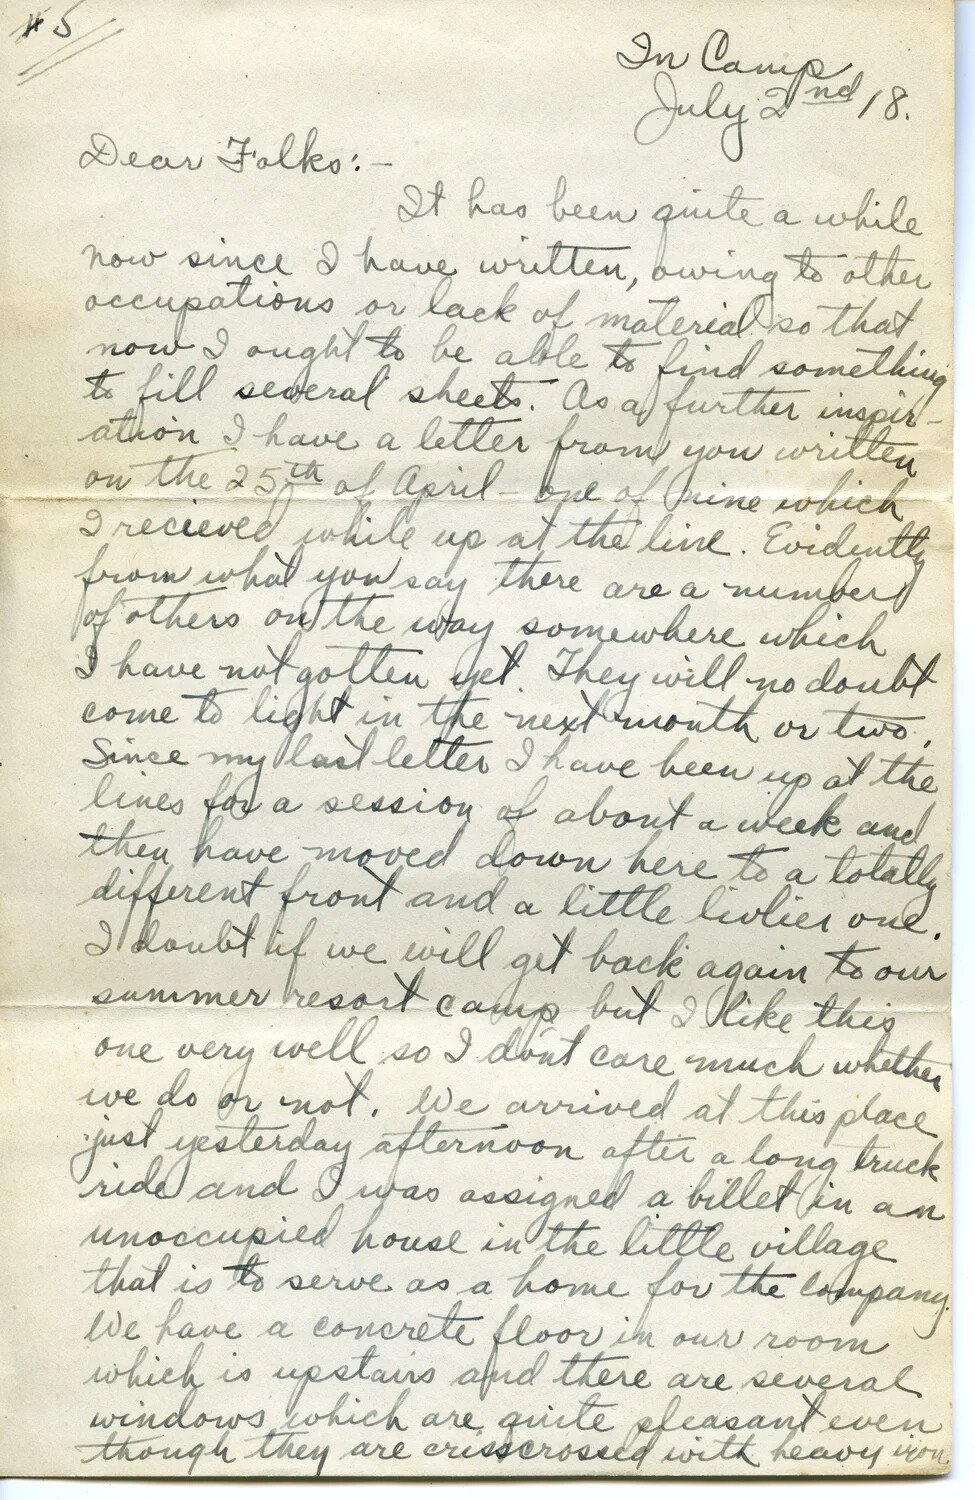 # 5
In Camp
July 2nd 18.
Dear Folks:-
It has been quite a while
now since I have written, owing to other
occupations or lack of material so that
now I ought to be able to find something
to fill several sheets. As a further inspir-
ation I have a letter from you written
on the 25th of April - one of nine which
I recieved while up at the line. Evidently
from what you say there are a number
of others on the way somewhere which
I have not gotten yet. They will no doubt
come to light in the next month or two.
Since my last letter I have been up at the
lines for a session of about a week and
then have moved down here to a totally
different front and a little livlier one.
I doubt if we will get back again to our
summer resort camp but I like this
one very well so I don't care much whether
we do or not. We arrived at this place
just yesterday afternoon after a long truck
ride and I was assigned a billet in an
unoccupied house in the little village
that is to serve as a home for the Company.
We have a concrete floor in our room
which is upstairs and there are several
windows which are quite pleasant even
though they are crisscrossed with heavy iron